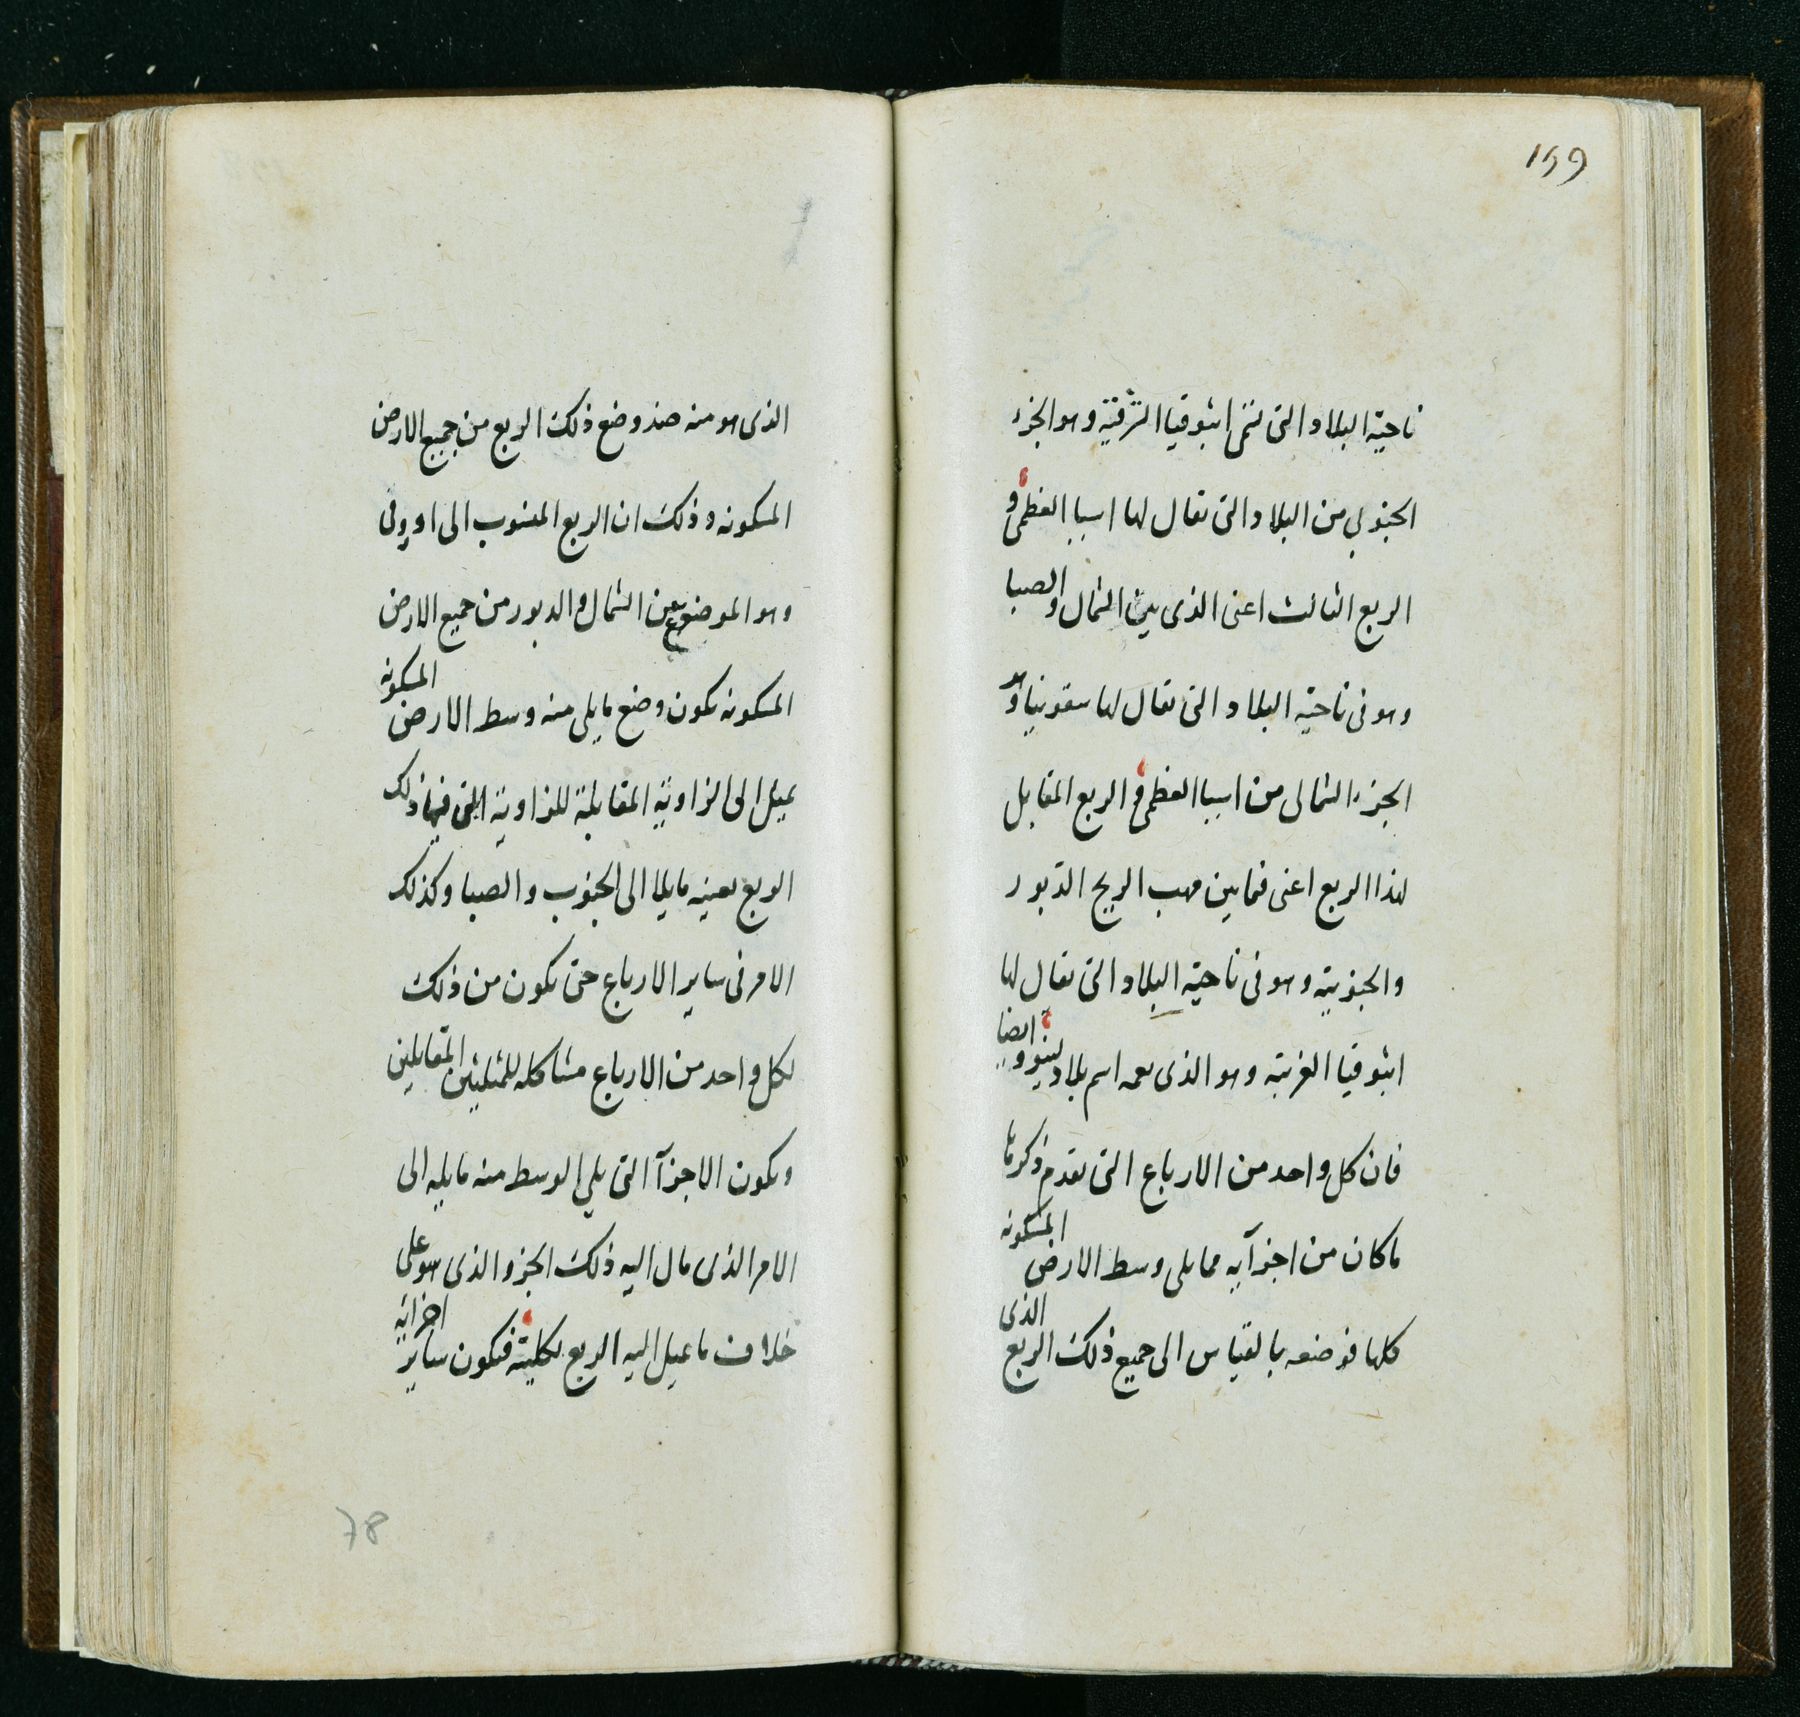 199
ناحية البلاد التى تسمى اثيوقيا الشرقية وهو الجزء
الجنوبي من البلاد التى يقال لها اسيا العظمى و
الربع الثالث اعنى الذى بين الشمال والصبا
وهو فى ناحية البلاد التى يقال لها سقوثيا وهو
الجزء الشمالى من اسيا العظمى و الربع المقابل
لهذا الربع اعنى فيما بين مهب الريح الدبور
والجنوبية وهو فى ناحية البلاد التى يقال لها
اثيوقيا الغربية وهو الذى يعمه اسم بلاد لينوو ايضا
فان كل واحد من الارباع التى تقدم ذكرنا لها
ما كان من اجزآيه مما يلى وسط الارض المسكونه
كلها فوضعه بالقياس الى جميع ذلك الربع الذى
الذى هو منه ضد وضع ذلك الربع من جميع الارض
المسكونه و ذلك ان الربع المنسوب الى اوروفى
وهو الموضوع بين الشمال والدبور من جميع الارض
المسكونه يكون وضع ما يلى منه وسط الارض المسكونه
يميل الى الزاوية المقابلة للزاوية التى فيها ذلك
الربع بعينه مايلا الى الجنوب والصبا وكذلك
الامر فى ساير الارباع حتى يكون من ذلك
لكل واحد من الارباع مشاكله للمثلثين المتقابلين
ويكون الاجزآ التى يلي الوسط منه مايله الى
الامر الذى مال اليه ذلك الجزو الذى هو على
خلاف ما يميل اليه الربع بكليته فيكون ساير اجزائه
78